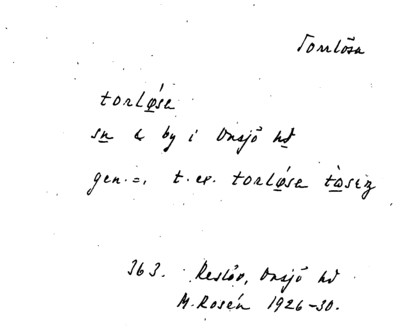 Torrlösa
torlǿ̲sa
sn̲ & by i Onsjö hd̲
gen. =, t. ex. torlǿ̲sa
363. Reslöv, Onsjö hd
M. Rosén 1926-30.